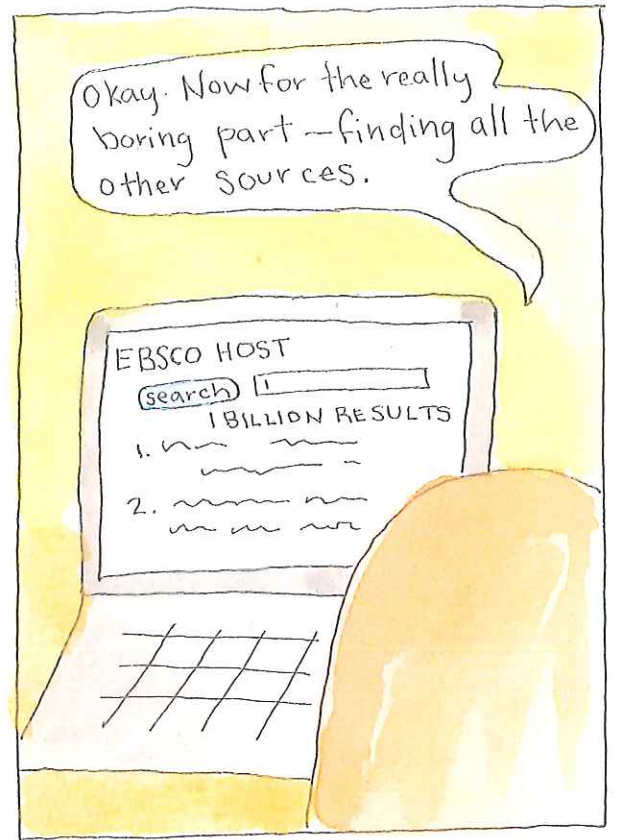 Okay. Now for the really
boring part—finding all the
other sources.
EBSCO HOST
search
1 BILLION RESULTS
1.
2.